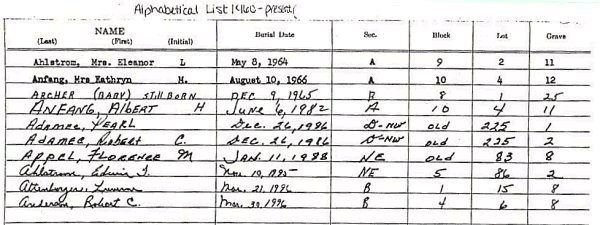 Alphabetical List 1960-present
NAME
(Last) (First) (Initial) Burial Date Sec. Block Lot Grave
Ahlstrom, Mrs. Eleanor L May 8, 1964 A 9 2 11
Anfang, Mrs Kathryn M. August 10, 1966 A 10 4 12
ARCHER (BABY) Still BORN DEC 9, 1965 B 8 1 25
ANFANG, Albert H June 6, 1982 A 10 4 11
Adamec, Pearl Dec. 26, 1986 D-NW OLD 225 1
Adamec, Robert C. DEC. 26, 1986 D-NW OLD 225 2
Appel, Florence M JAN. 11, 1988 NE OLD 83 8
Ahlstrom, Edwin J. 10, NE 5 86 2
Mar. 21, 1996 B 1 15 8
Anderson, Robert C. Mar. 30, 1996 B 4 6 8